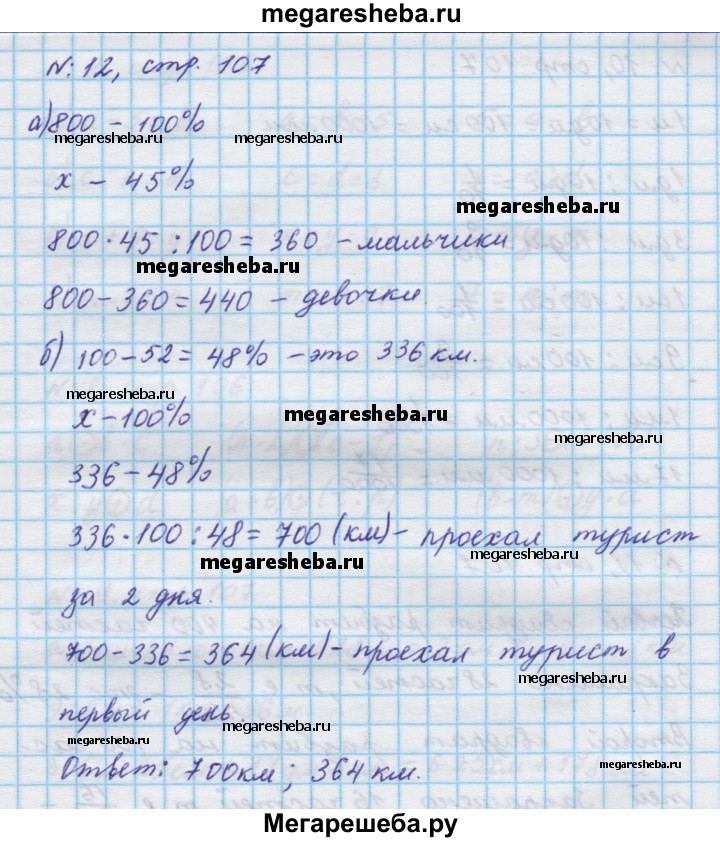 megaresheba.ru
№: 12, стр. 107
а) 800 - 100%
megaresheba.ru megaresheba.ru
х - 45%
megaresheba.ru
800 · 45 : 100 = 360 - мальчики
megaresheba.ru
800 - 360 = 440 - девочки.
б) 100 - 52 = 48% - это 336 км.
megaresheba.ru
х - 100%
megaresheba.ru
megaresheba.ru
336 - 48%
336 · 100 : 48 = 700 (км) - проехал турист
megaresheba.ru
megaresheba.ru
за 2 дня.
700 - 336 = 364 (км) - проехал турист в
megaresheba.ru
первый день.
megaresheba.ru
megaresheba.ru
Ответ: 700 км; 364 км.
Мегарешеба.ру